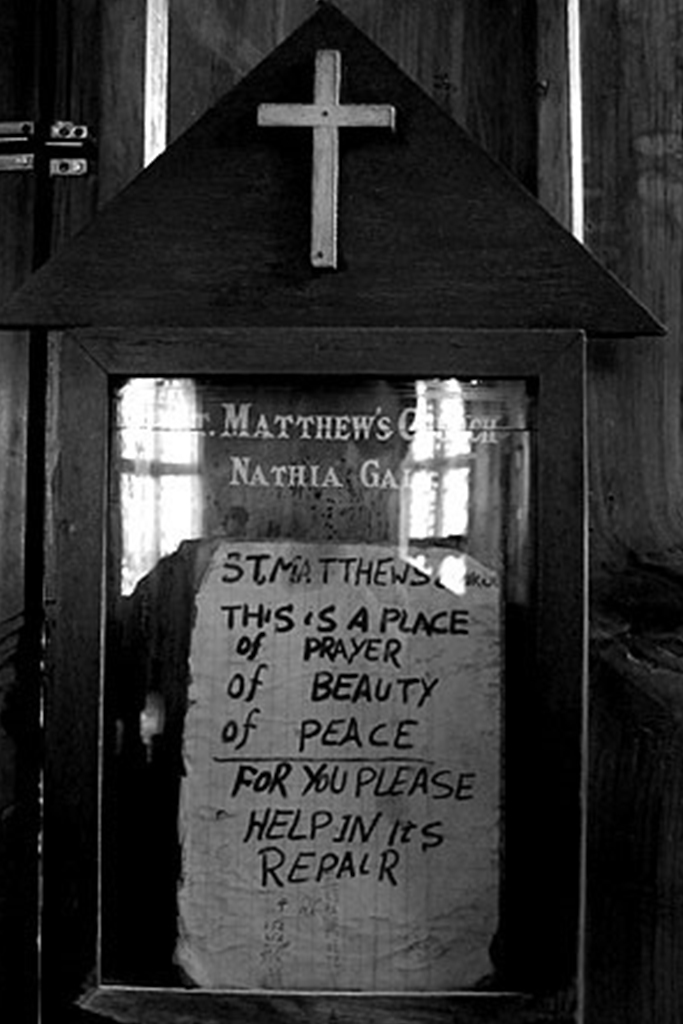 ST. MATTHEW'S CHURCH
NATHIA GALI
ST. MATTHEWS
THIS IS A PLACE
of PRAYER
of BEAUTY
of PEACE
FOR YOU PLEASE
HELP IN ITS
REPAIR